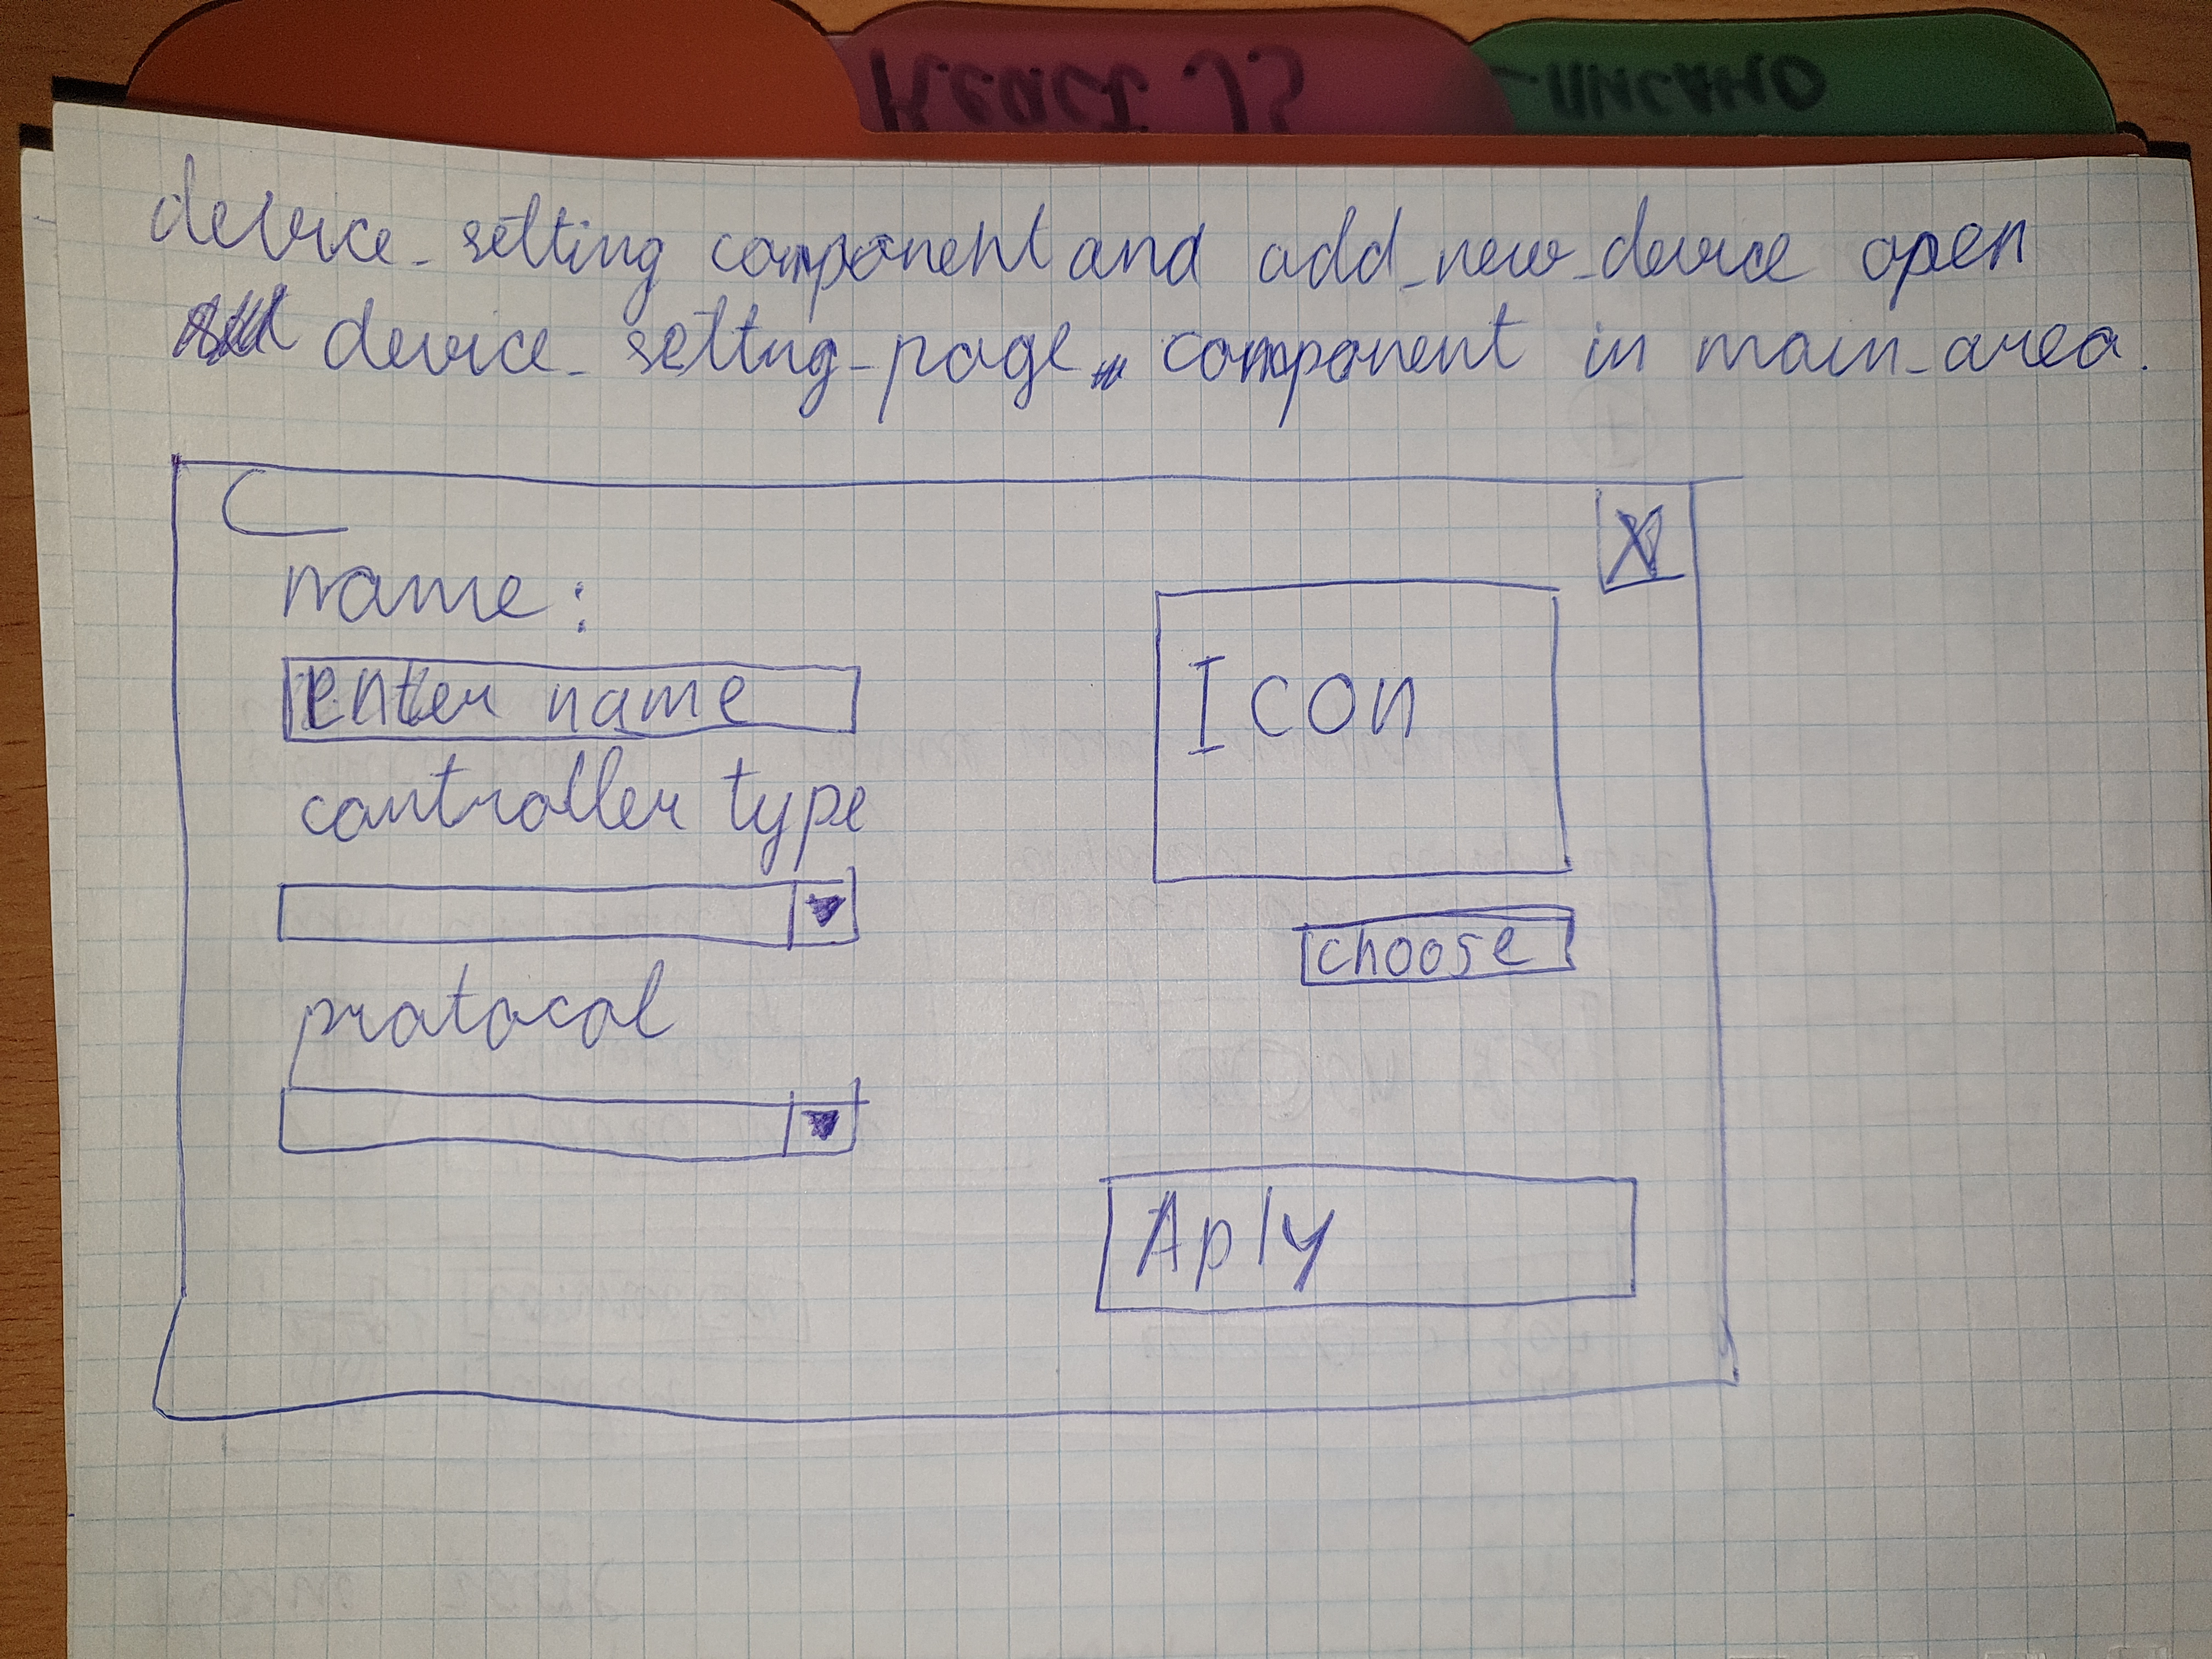 React JS
-писано
device_setting component and add_new_device open
device_setting_page component in main_area.
X
name:
enter name
Icon
controller type
choose
protocol
Aply